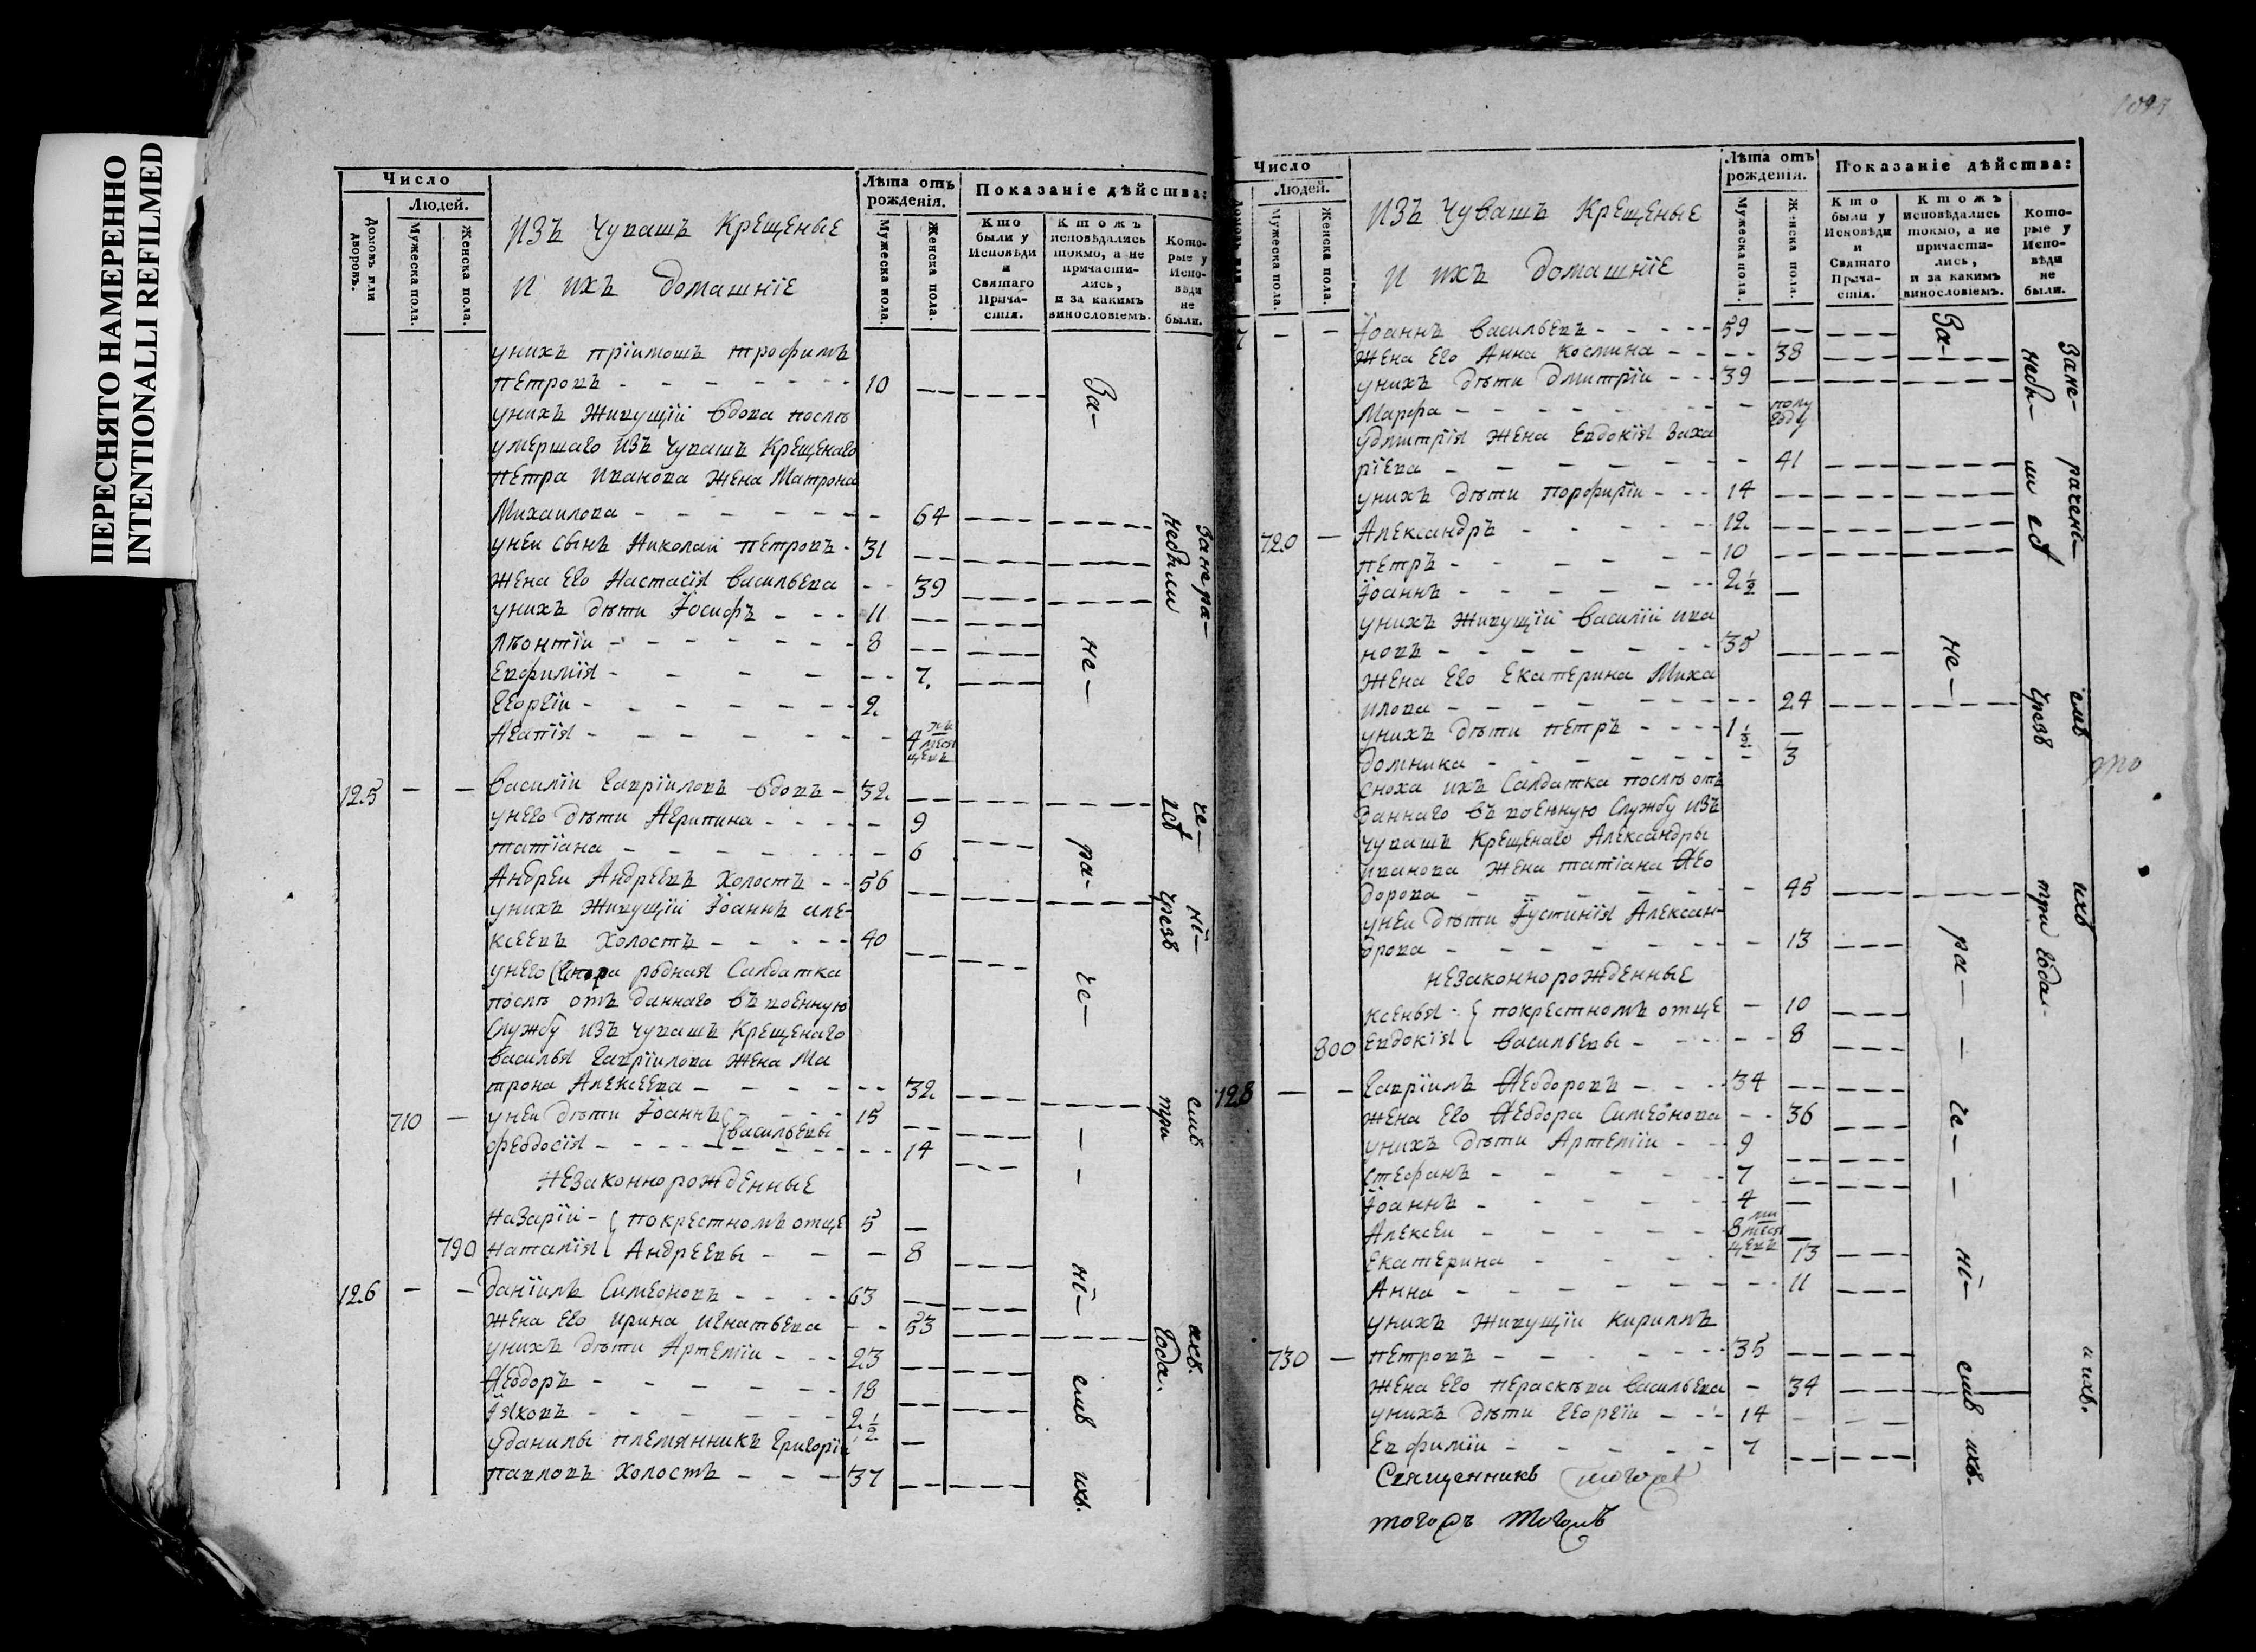 ПЕРЕСНЯТО НАМЕРЕННО
INTENTIONALLI REFILMED
Число
Людей.
Домовъ или дворовъ.
Мужеска пола.
Женска пола.
ИЗЪ Чувашъ Крещеные
и ихъ домашніе
Лѣта отъ рожденія.
Мужеска пола.
Женска пола.
Показаніе дѣйства:
Кто были у Исповѣди и Святаго Прича-стія.
Ктожъ исповѣдались токмо, а не причасти-лись, и за какимъ винословіемъ.
Кото-рые у Испо-вѣди не были.
унихъ пріимошъ трофимъ
петровъ - 10
унихъ живущій вдова послѣ
умершаго изъ чувашъ крещенаго
петра иванова жена матрона
михаилова - 64
унеи сынъ николаи петровъ - 31
жена его настасія васильева - 39
унихъ дѣти іосифъ - 11
лѣонтіи - 8
евфимія - 7.
георгіи - 2
агапія - 4 месяцевъ
125 - - василіи гавріиловъ вдовъ - 32
унего дѣти агрипина - 9
татіана - 6
андреи андреевъ холостъ - 56
унихъ живущіи іоаннъ але-
ксеевъ холостъ - 40
унего родная салдатка
послѣ отъ даннаго въ военную
службу изъ чувашъ крещенаго
василья гавріилова жена ма
трона алексеева - 32
710 - унеи дѣти іоаннъ васильевы 15
феодосія - 14
незаконнорожденные
назаріи - { покрестномъ отце 5 -
790 наталія { андреевы - 8
126 - - даніилъ симеоновъ - 63
жена его ирина игнатьева - 53
унихъ дѣти артеміи - 23
ѳеодоръ - 18
іяковъ - 2 1/2
уданилы племянникъ григоріи
павловъ холостъ - 37
За-
не-
ра-
че-
ні-
емъ
ихъ.
Занера-
че-
ні-
емъ
ихъ.
небыли
всѣ
чрезъ
три
года.
Число
Людей.
Мужеска пола.
Женска пола.
ИЗЪ Чувашъ Крещеные
и ихъ домашніе
Лѣта отъ рожденія.
Мужеска пола.
Женска пола.
Показаніе дѣйства:
Кто были у Исповѣди и Святаго Прича-стія.
Ктожъ исповѣдались токмо, а не причасти-лись, и за какимъ винословіемъ.
Кото-рые у Испо-вѣди не были.
іоаннъ васильевъ - 59
жена его анна космина - 38
унихъ дѣти дмитріи - 39
марфа - полу году
удмитрія жена евдокія заха
ріева - 41
унихъ дѣти порфиріи - 14
720 - александръ - 12
петръ - 10
іоаннъ - 2 1/2
унихъ живущіи василіи ива
новъ - 35
жена его екатерина миха
илова - 24
унихъ дѣти петръ - 1 1/2
домника - 3
сноха ихъ салдатка послѣ отъ
даннаго въ военную службу изъ
чувашъ крещенаго александры
иванова жена татіана ѳео
дорова - 45
унеи дѣти іустинія алексан-
дрова - 13
незаконнорожденные
ксенья - { покрестномъ отце - 10
800 евдокія { васильевы - 8
128 - - гавріилъ ѳеодоровъ - 34
жена его ѳеодора симеонова - 36
унихъ дѣти артеміи - 9
стефанъ - 7
іоаннъ - 4
алексеи - 8 месяцевъ
екатерина - 13
анна - 11
унихъ живущіи кириллъ
730 - петровъ - 35
жена его пераскѣва васильева - 34
унихъ дѣти георгіи - 14
евфиміи - 7
Священникъ
За-
не-
ра-
че-
ні-
емъ ихъ.
Зане-
рачені-
емъ
ихъ
небы-
ли всѣ
чрезъ
три года.
и ихъ.